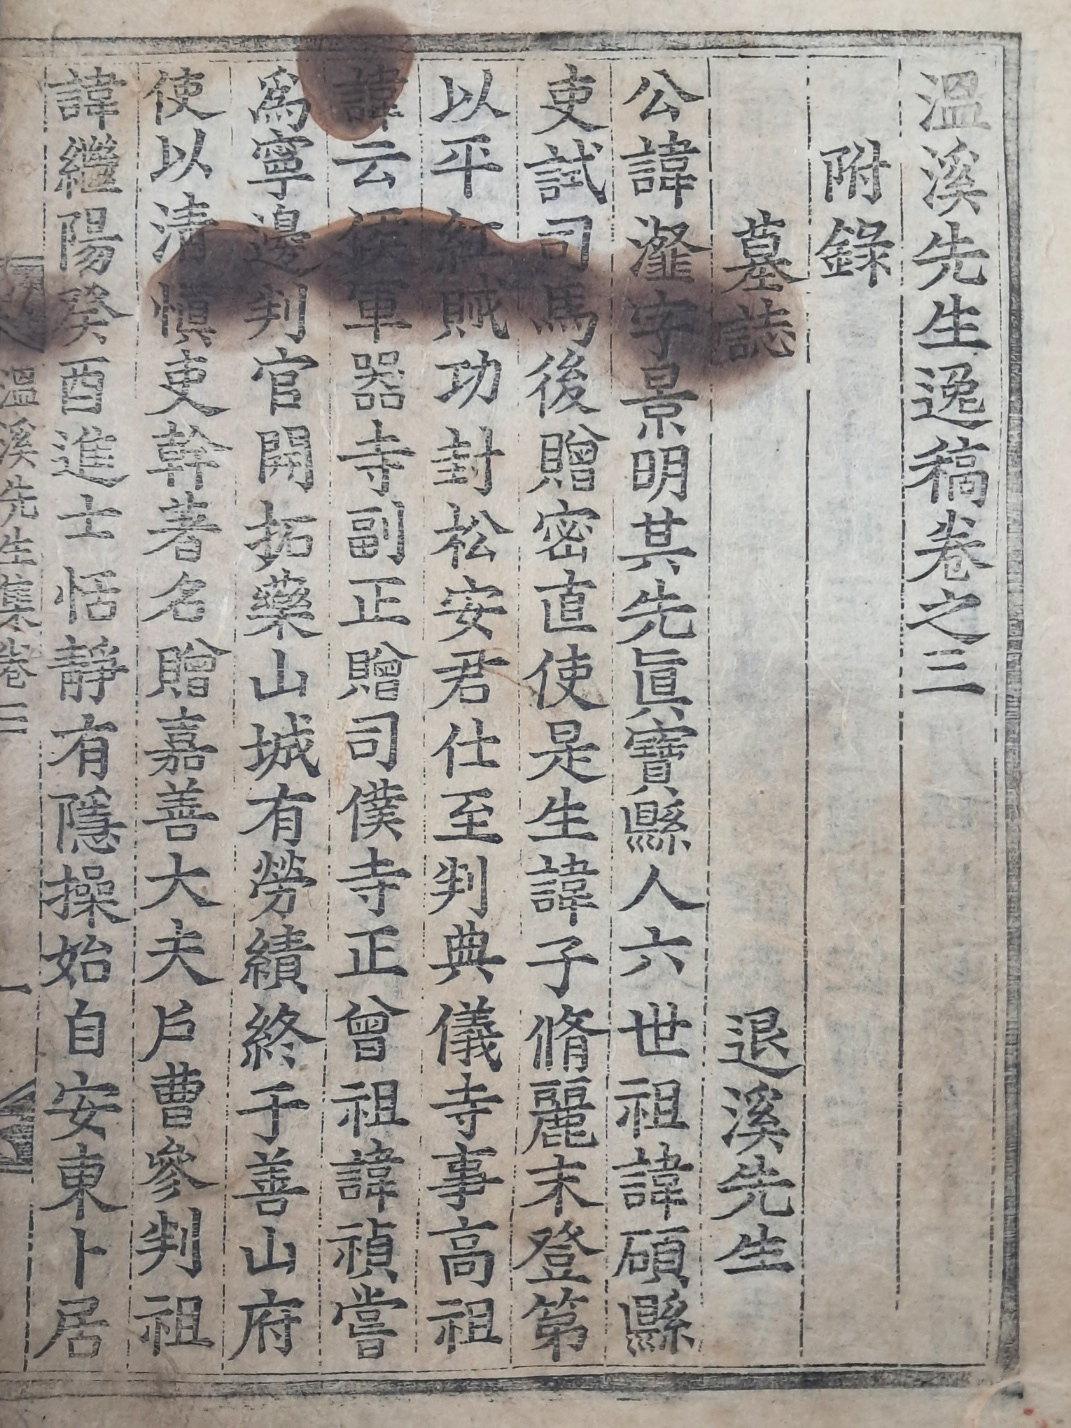 溫溪先生逸稿卷之三
附錄
墓誌 退溪先生
公諱瀣字景明其先眞寶縣人六世祖諱碩縣
吏試司馬後贈密直使是生諱子脩麗末登第
以平紅賊功封松安君仕至判典儀寺事高祖
諱云侯軍器寺副正贈司僕寺正曾祖諱禎嘗
爲寧邊判官開拓藥山城有勞績終于善山府
使以清愼吏幹著名贈嘉善大夫戶曹參判祖
諱繼陽癸酉進士恬靜有隱操始自安東卜居
溫溪先生集卷三 一